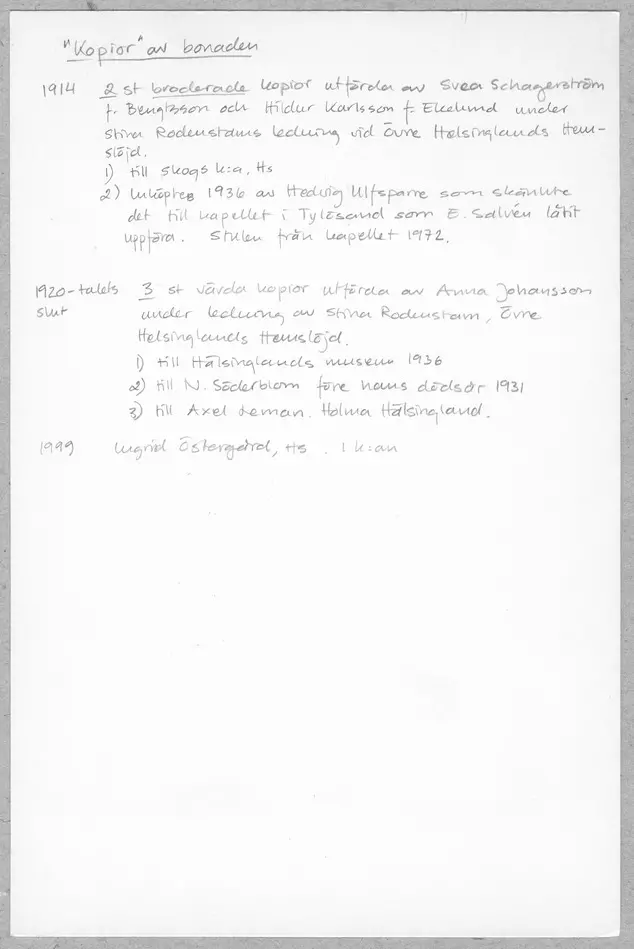 "Kopior" av bonaden
1914 2 st broderade kopior utförda av Svea Schagerström
f. Bengtsson och Hildur Karlsson f. Ekelund under
Stina Rodenstams ledning vid Övre Hälsinglands Hem-
slöjd.
1) till Skogs k:a, Hs
2) Inköptes 1936 av Hedvig Ulfsparre som skänkte
det till kapellet i Tylösand som E. Salvén låtit
uppföra. Stulen från kapellet 1972.
1920-talets 3 st vävda kopior utförda av Anna Johansson
slut under ledning av Stina Rodenstam, Övre
Helsinglands Hemslöjd.
1) till Hälsinglands museum 1936
2) till N. Söderblom före hans dödsår 1931
3) till Axel Leman. Holma Hälsingland.
1999 Ingrid Östergård, Hs . I k:an